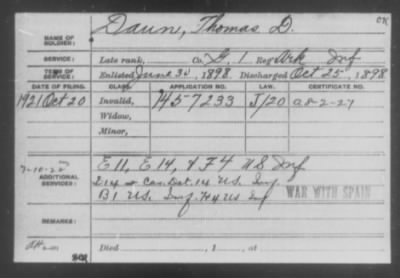 Daun, Thomas D. OK
NAME OF SOLDIER:
SERVICE: Late rank, Co. G, 1 Reg't Ark Inf
TERM OF SERVICE: Enlisted June 30, 1898. Discharged Oct 25, 1898
DATE OF FILING. CLASS. APPLICATION NO. LAW. CERTIFICATE NO.
1921 Oct 20 Invalid, 1457233 J/20 a 8-2-27
Widow,
Minor,
7-10-22
ADDITIONAL SERVICES: E 11, E 14, & F 4 U S Inf
I 14 & Cas. Det. 14 U.S. Inf.
B 1 U.S. Inf. H 4 U S Inf WAR WITH SPAIN
REMARKS:
Died , 1 , at